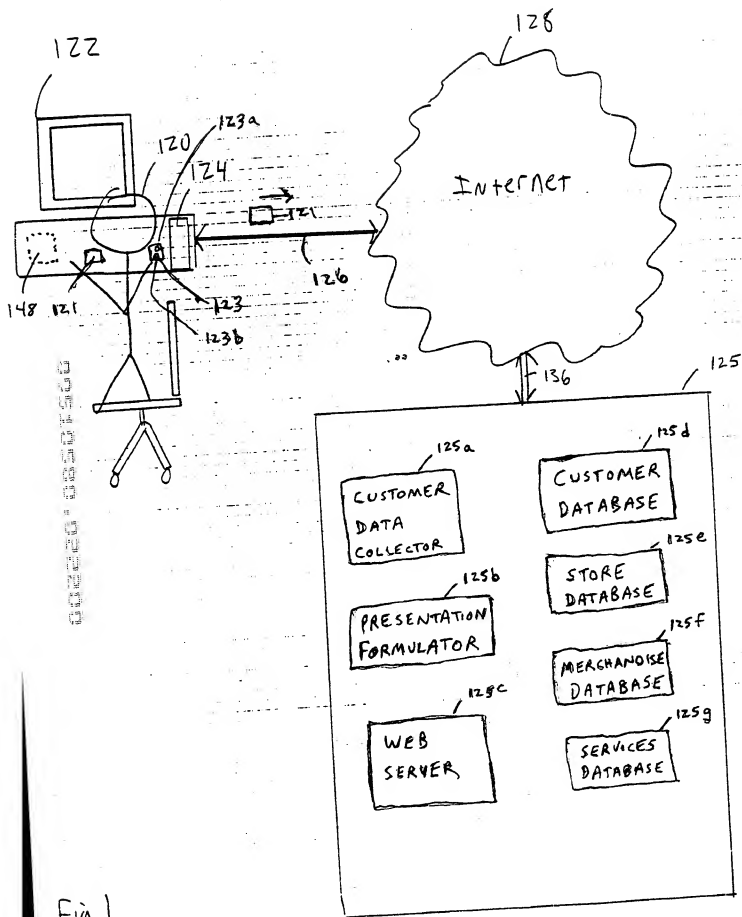 128
122
123a
120
124
Internet
121
126
148
121
123
123b
136
125
125a
125d
CUSTOMER
DATA
COLLECTOR
CUSTOMER
DATABASE
125e
STORE
DATABASE
125b
PRESENTATION
FORMULATOR
125f
MERCHANDISE
DATABASE
125c
WEB
SERVER
125g
SERVICES
DATABASE
Fig 1